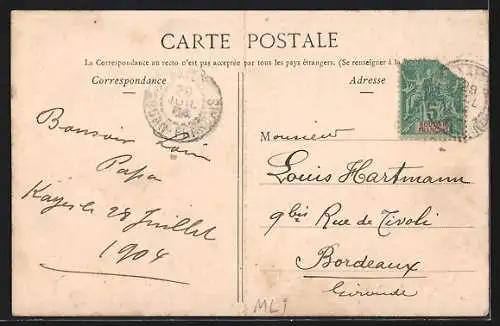 CARTE POSTALE
La Correspondance au recto n'est pas acceptée par tous les pays étrangers. (Se renseigner à la
Correspondance
Adresse
29
JUIL
5
SOUDAN
FRANÇAIS
Bonsoir
Papa
Kayes le 28 Juillet
1904
Monsieur
Louis Hartmann
9bis Rue de Tivoli
Bordeaux
Gironde
ML1